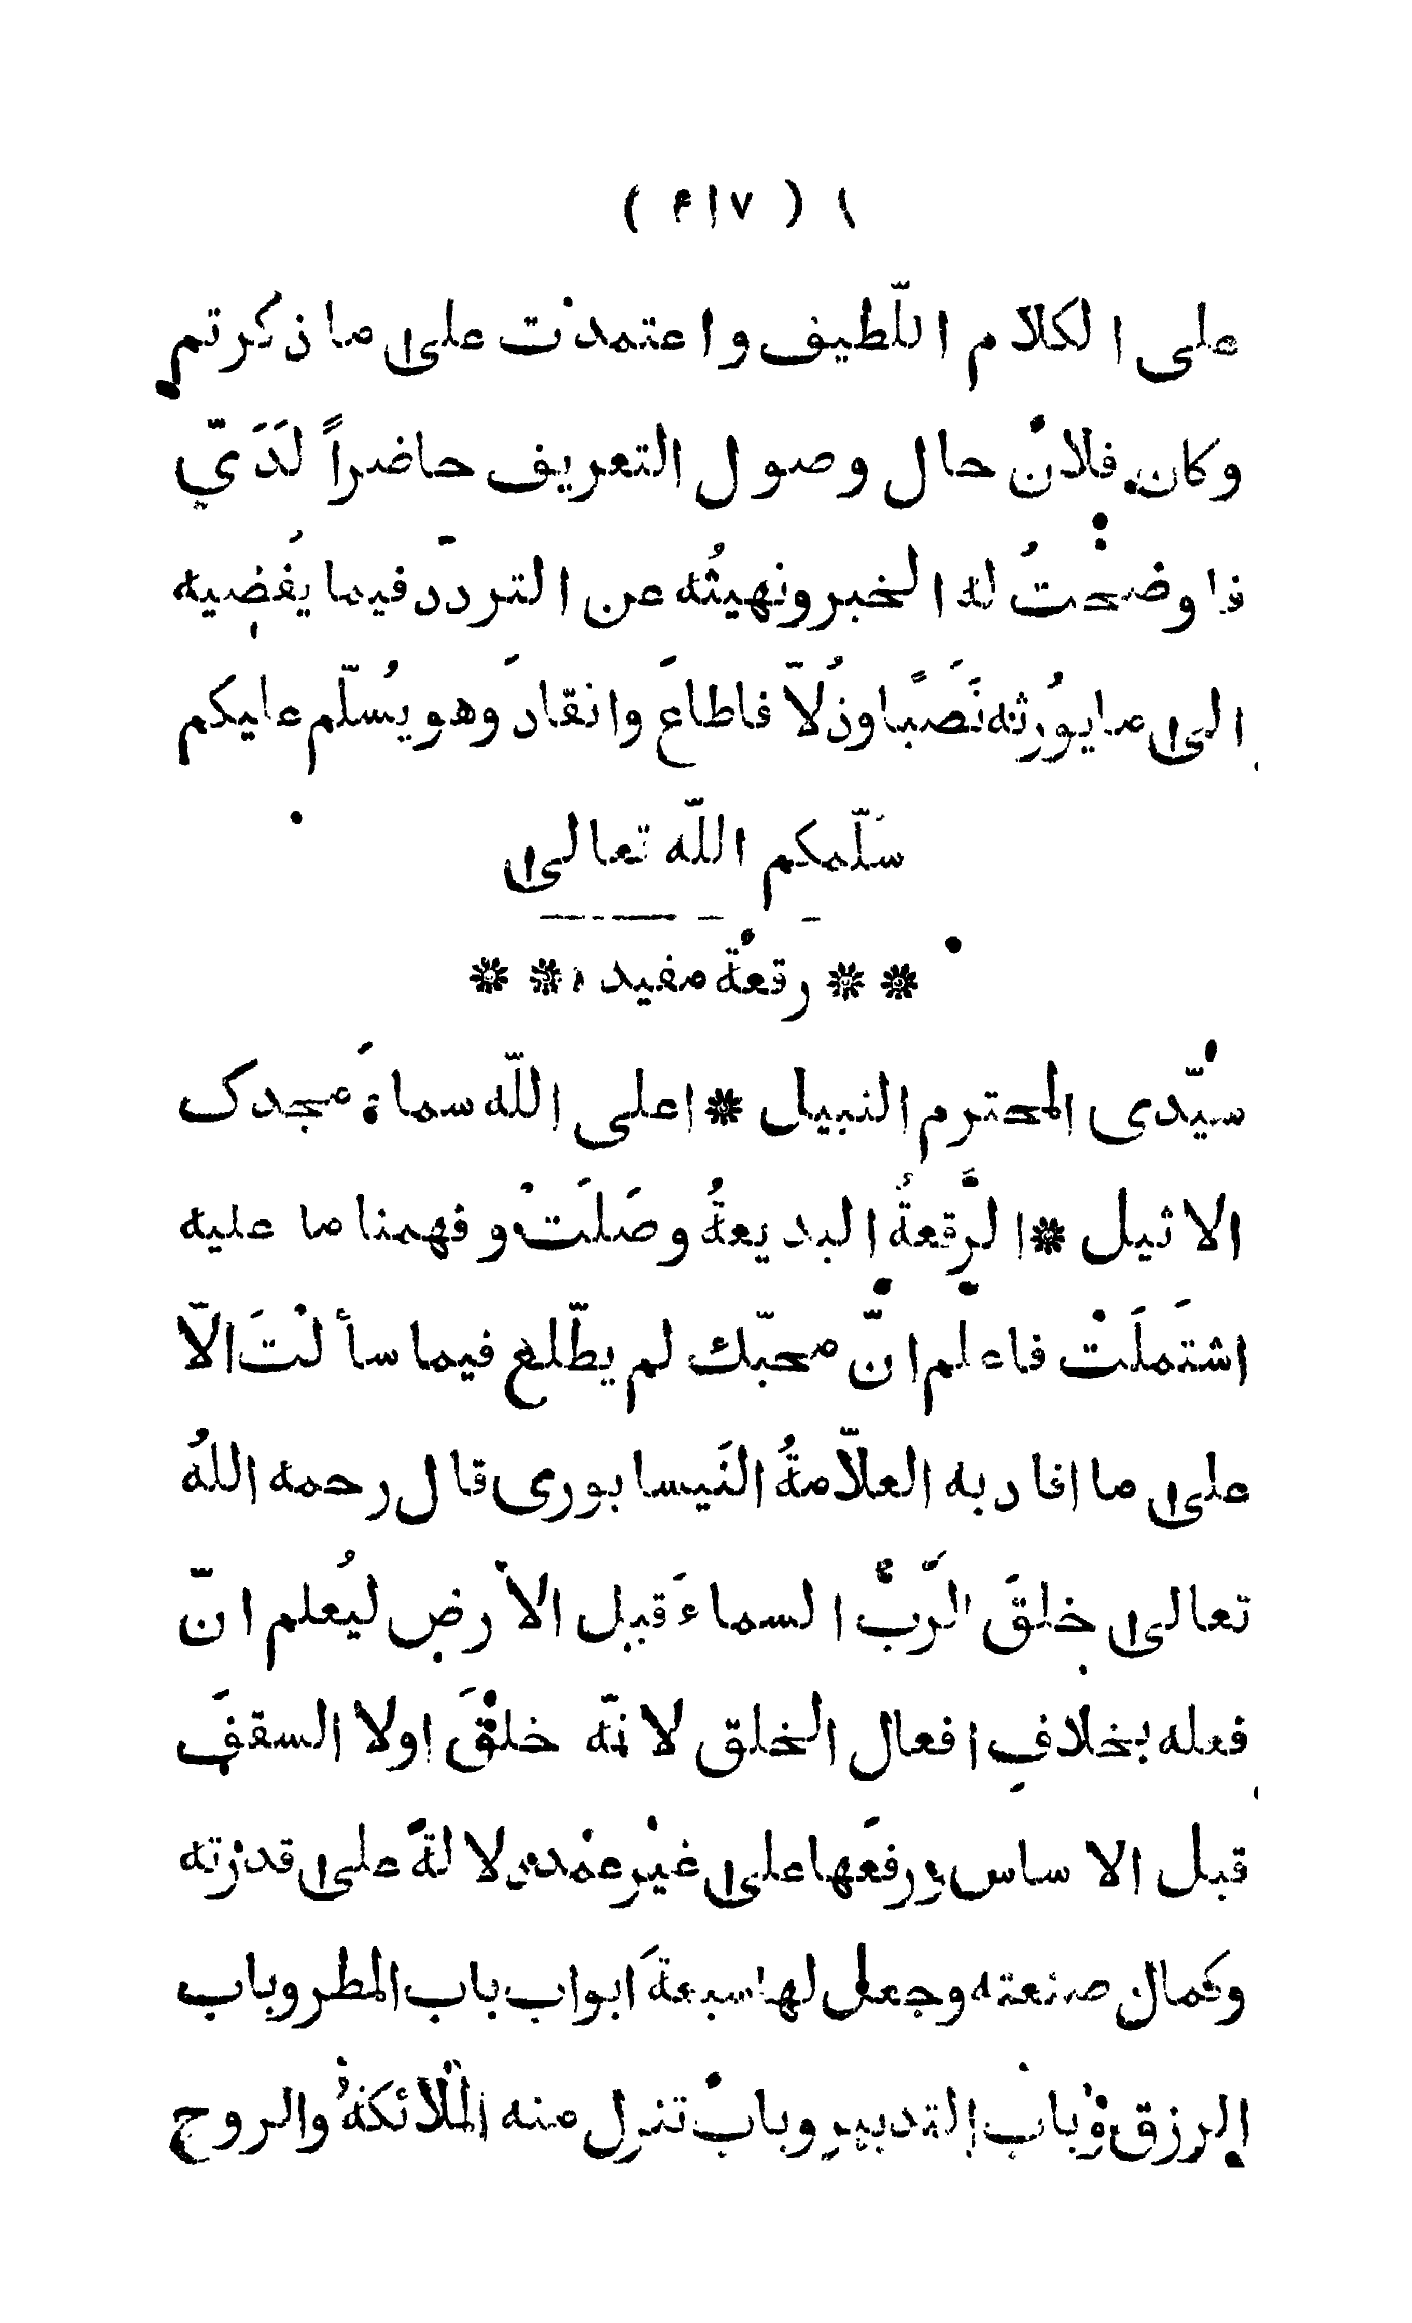 ( ۴۱۷ )
على الكلام اللّطيف واعتمدت على ما ذكرتم
وكان فلانٌ حال وصول التعريف حاضراً لَدَيّ
فاوضحتُ له الخبر ونهيتُه عن التردّد فيما يفضيه
الى ما يُورثه نَصَبًا وذُلّا فاطاعَ وانقادَ وهو يُسلّم عليكم
سَلّمكم اللّه تعالى
** رقعة مفيدة **
سيّدى المحترم النبيل * اعلى اللّه سماءَ مجدك
الاثيل * الرُّقعةُ البديعةُ وصَلَتْ وفهمنا ما عليه
اشتَملَتْ فاعلم انّ محبّك لم يطّلع فيما سألتَ الّا
على ما افاد به العلّامةُ النَيسابورى قال رحمه اللهُ
تعالى خلقَ الرَّبُّ السماءَ قبل الأرض ليُعلم انّ
فعله بخلافِ افعال الخلق لانّه خلقَ اولا السقفَ
قبل الاساس ورفعَها على غيرعمد دلالةً على قدرته
وكمال صنعته وجعل لها سبعةَ ابواب باب المطر وباب
الرزق وباب التدبير وباب تنزل منه الملائكةُ والروح